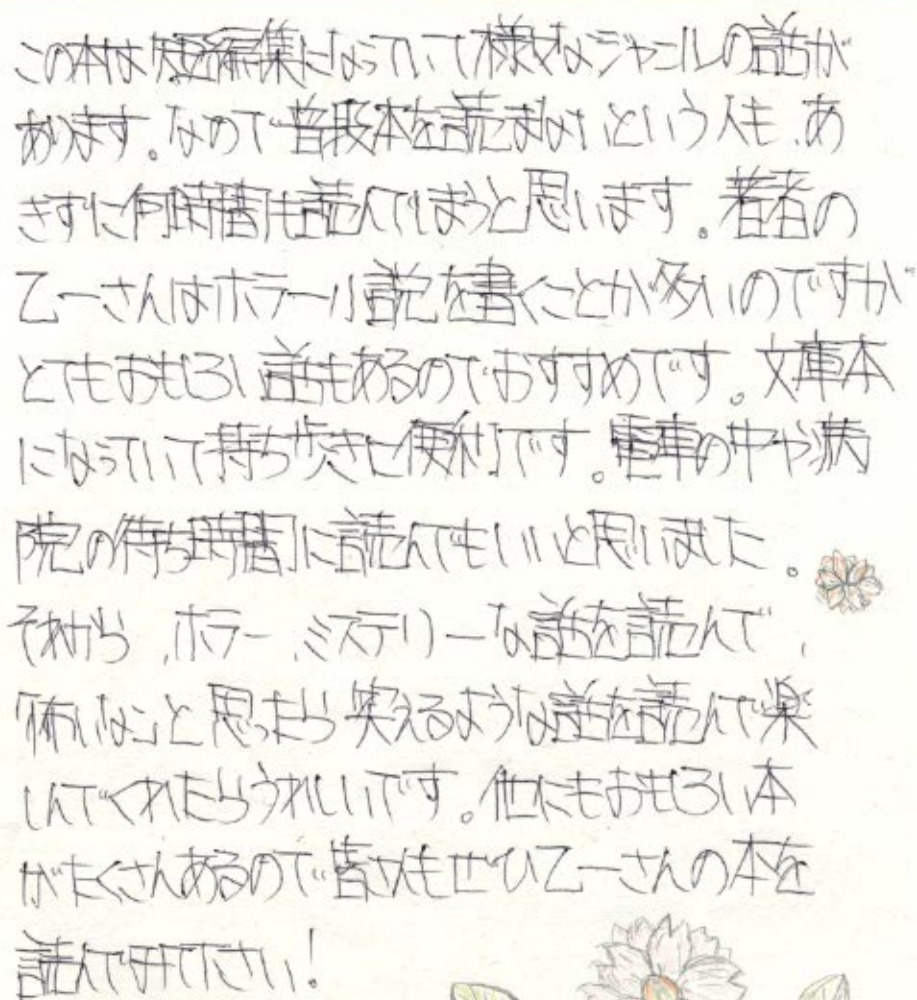 この本は短編集になっていて様々なジャンルの話が
あります。なので普段本を読まないという人も、あ
きずに何時間も読んでしまうと思います。著者の
乙一さんはホラー小説を書くことが多いのですが
とてもおもしろい話もあるのでおすすめです。文庫本
になっていて持ち歩きに便利です。電車の中や病
院の待ち時間に読んでもいいと思いました。
それから、ホラー、ミステリーな話を読んで、
怖いなぁと思ったら笑えるような話を読んで楽
しんでくれたらうれしいです。他にもおもしろい本
がたくさんあるので皆さんもぜひ乙一さんの本を
読んでみて下さい!